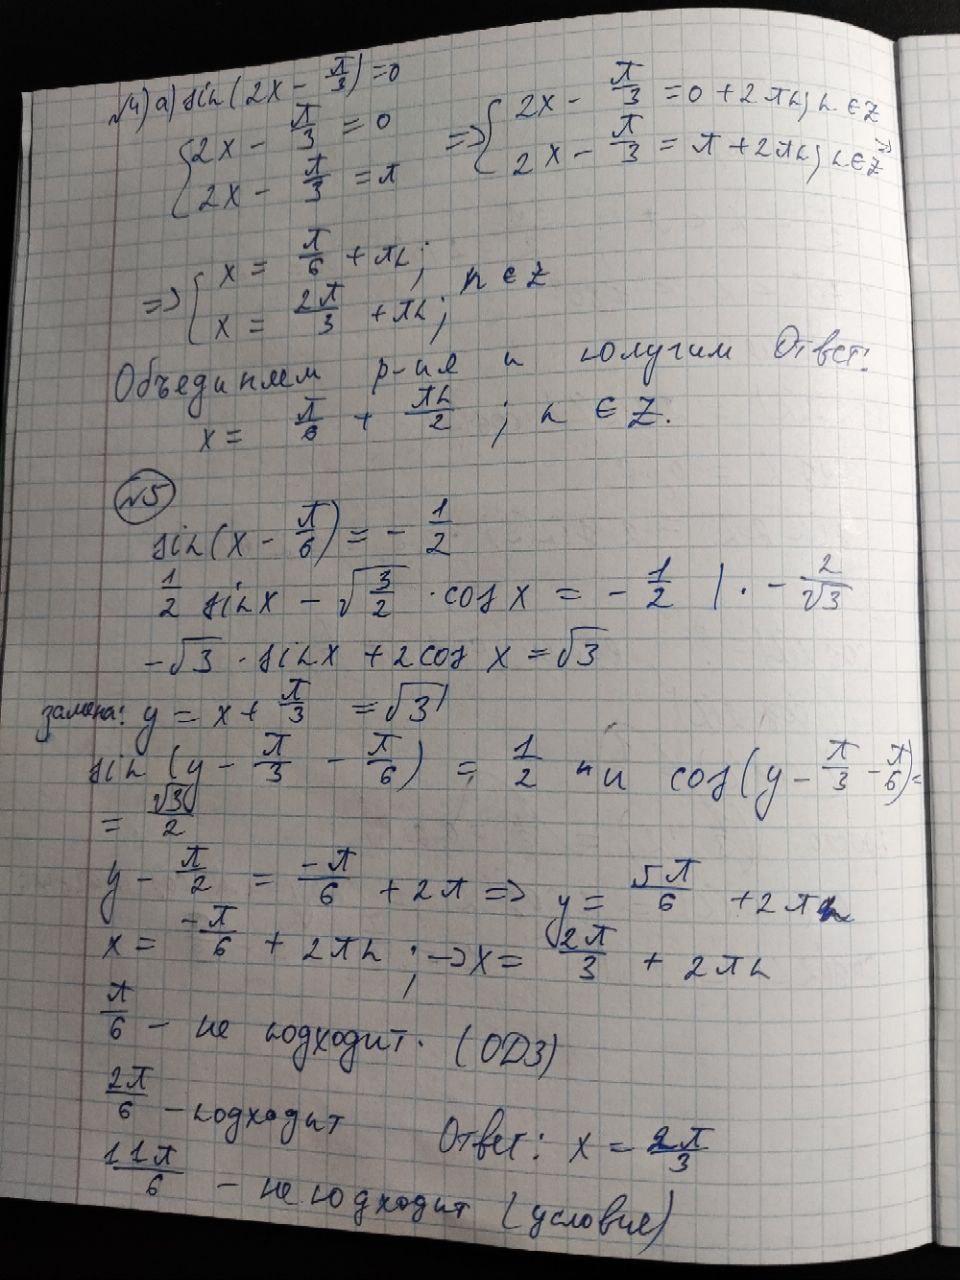 №4) а) sin(2x - π/3) = 0
{2x - π/3 = 0 => {2x - π/3 = 0 + 2πn; n ∈ Z
{2x - π/3 = π {2x - π/3 = π + 2πn; n ∈ Z =>
=> {x = π/6 + πn; n ∈ Z
{x = 2π/3 + πn;
Объединяем р-ия и получим Ответ:
x = π/6 + πn/2 ; n ∈ Z.
№5
sin(x - π/6) = - 1/2
1/2 sin x - √(3/2) · cos x = - 1/2 | · - 2/√3
-√3 · sin x + 2cos x = √3
замена: y = x + π/3 = √3
sin (y - π/3 - π/6) = 1/2 и cos(y - π/3 - π/6) =
= √3/2
y - π/2 = -π/6 + 2π => y = 5π/6 + 2πn
x = -π/6 + 2πn ; → x = 2π/3 + 2πn
π/6 - не подходит. (ОДЗ)
2π/6 - подходит
Ответ: x = 2π/3
11π/6 - не подходит (условие)